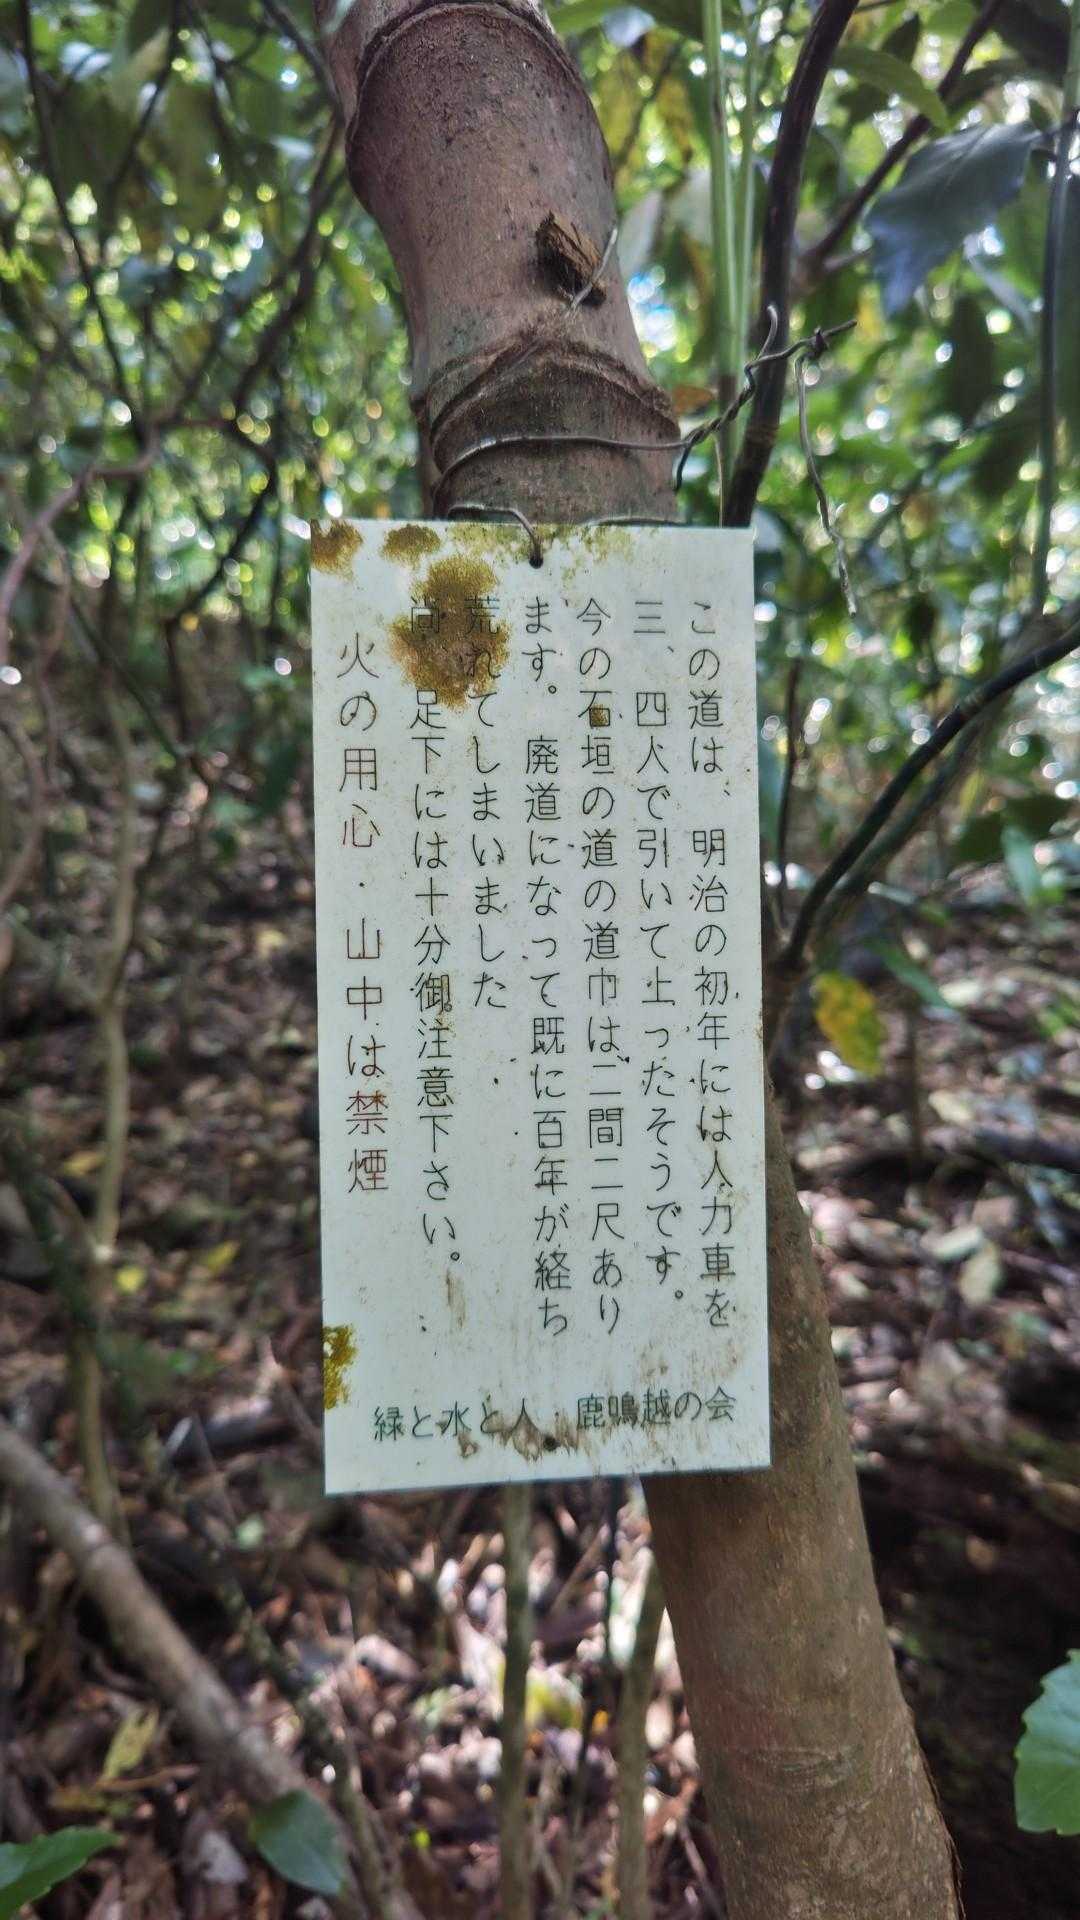 この道は、明治の初年には人力車を
三、四人で引いて上ったそうです。
今の石垣の道の道巾は二間二尺あり
ます。廃道になって既に百年が経ち
荒れてしまいました
尚、足下には十分御注意下さい。
火の用心・山中は禁煙
緑と水と人 鹿鳴越の会